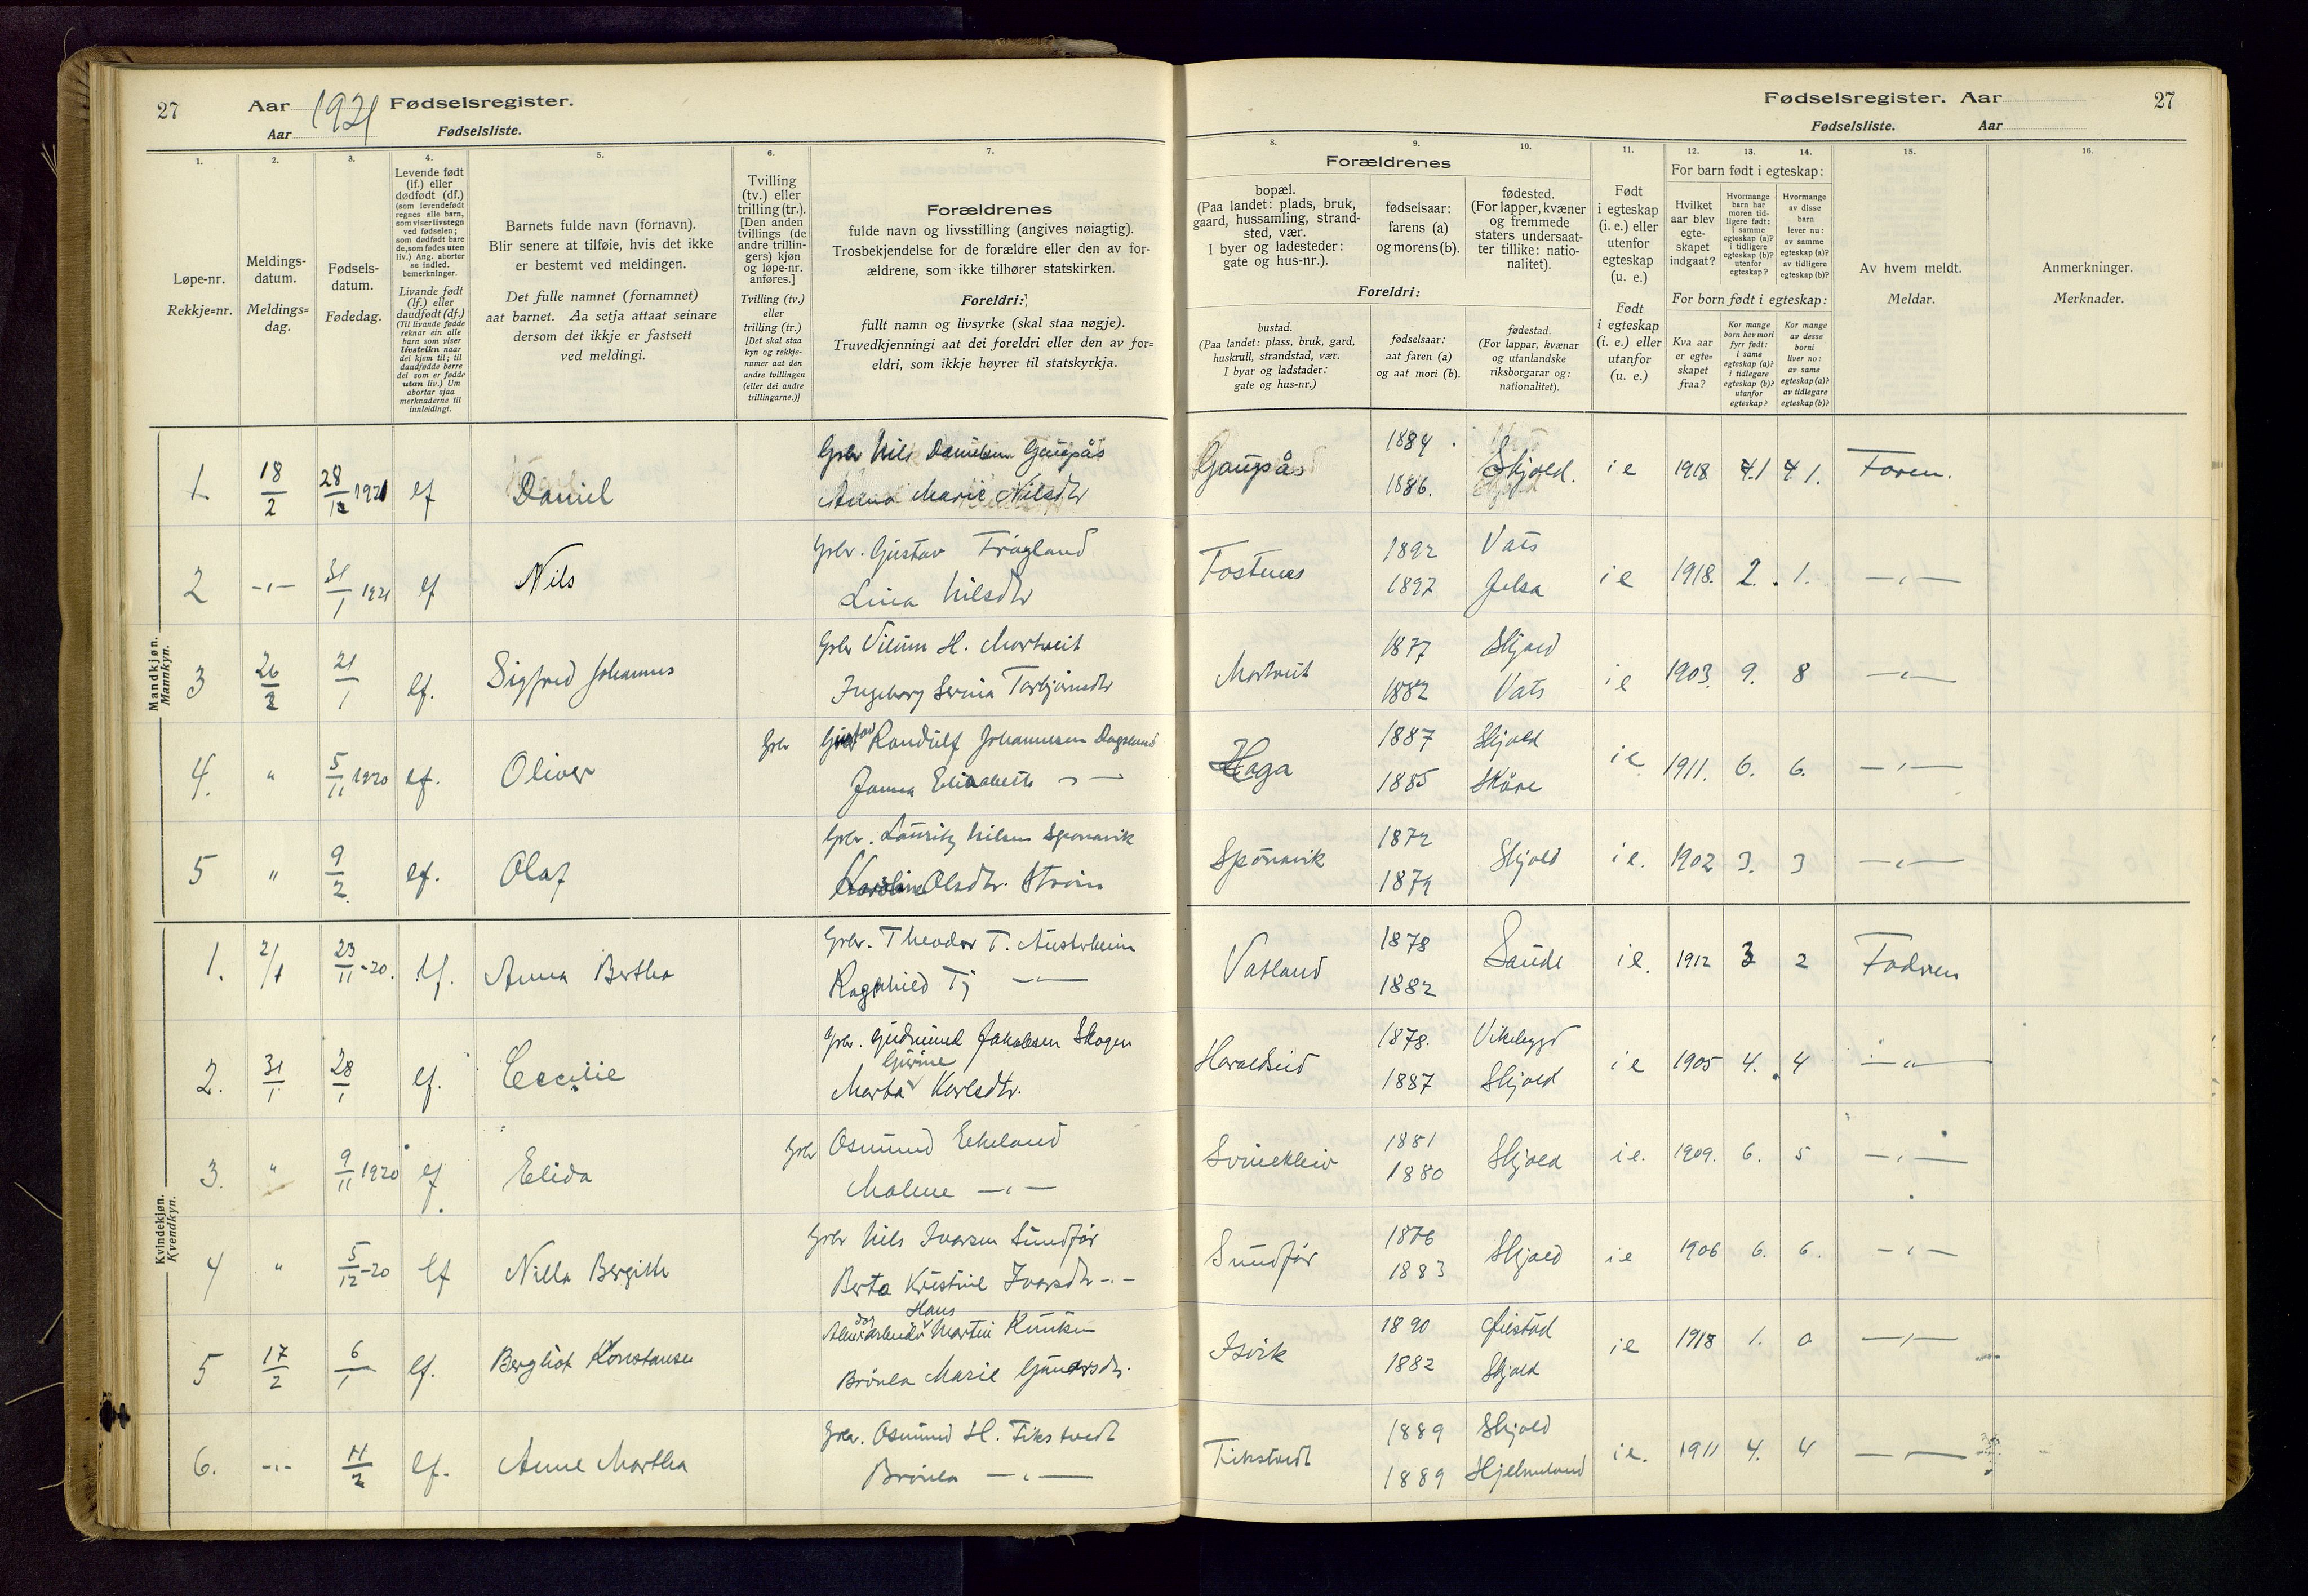 27 Aar 1921 Fødselsregister.
Aar Fødselsliste.
Fødselsregister. Aar 27
Fødselsliste. Aar
1.
Løpe-nr.
Rekkje=nr.
2.
Meldings-
datum.
Meldings=
dag.
3.
Fødsels-
datum.
Fødedag.
4.
Levende født
(lf.) eller
dødfødt (df.)
(som levendefødt
regnes alle barn,
som viser livstegn
ved fødselen;
som dødfødt bare
de, som fødes uten
liv.) Ang. aborter
se indled.
bemerkninger.
Livande født
(lf.) eller
daudfødt (df.)
(Til livande fødde
reknar ein alle
barn som viser
livsteikn naar
dei kjem til; til
daudfødde berre
dei som er fødde
utan liv.) Um
abortar sjaa
merknaderne til
innleidingi.
5.
Barnets fulde navn (fornavn).
Blir senere at tilføie, hvis det ikke
er bestemt ved meldingen.
Det fulle namnet (fornamnet)
aat barnet. Aa setja attaat seinare
dersom det ikkje er fastsett
ved meldingi.
6.
Tvilling
(tv.) eller
trilling (tr.).
[Den anden
tvillings (de
andre trillin-
gers) kjøn
og løpe-nr.
anføres.]
Tvilling (tv.)
eller
trilling (tr.)
[Det skal staa
kyn og rekkje-
numer aat den
andre tvillingen
(eller dei andre
trillingarne.)]
7.
Forældrenes
fulde navn og livsstilling (angives nøiagtig).
Trosbekjendelse for de forældre eller den av for-
ældrene, som ikke tilhører statskirken.
Foreldri:
fullt namn og livsyrke (skal staa nøgje).
Truvedkjenningi aat dei foreldri eller den av for=
eldri, som ikkje høyrer til statskyrkja.
Forældrenes
8.
bopæl.
(Paa landet: plads, bruk,
gaard, hussamling, strand-
sted, vær.
I byer og ladesteder:
gate og hus-nr.).
9.
fødselsaar:
farens (a)
og morens (b).
10.
fødested.
(For lapper, kvæner
og fremmede
staters undersaat-
ter tillike: natio-
nalitet).
Foreldri:
bustad.
(Paa landet: plass, bruk, gard,
huskrull, strandstad, vær.
I byar og ladstader:
gate og hus=nr.)
fødselsaar:
aat faren (a)
og aat mori (b).
fødestad.
(For lappar, kvænar
og utanlandske
riksborgarar og:
nationalitet).
11.
Født
i egteskap
(i. e.) eller
utenfor
egteskap
(u. e.)
Født
i egteskap
(i. e.) eller
utanfor
(u. e.)
12. 13. 14.
For barn født i egteskap:
Hvilket
aar blev
egte-
skapet
indgaat?
Hvormange
barn har
moren tid-
ligere født:
i samme
egteskap (a)?
i tidligere
egteskap (b)?
utenfor
egteskap?
Hvormange
av disse
barn
lever nu:
av samme
egteskap (a)?
av tidligere
egteskap (b)?
For born født i egteskap:
Kva aar
er egte=
skapet
fraa?
Kor mange
born hev mori
fyrr født:
i same
egteskap (a)?
i tidlegare
egteskap (b)?
utanfor
egteskap?
Kor mange
av desse
borni
liver no:
av same
egteskap (a)?
av tidlegare
egteskap (b)?
15.
Av hvem meldt.
Meldar.
16.
Anmerkninger.
Merknader.
Mandkjøn.
Mannkyn.
1. 18/2 28/12 1921 lf Daniel Gbr Nils Danielsen Gaupås Gaupås 1884 Skjold. i e 1918 1 1. Faren.
Anna Marie Nilsdtr 1886.
2 -"- 31/1 1921 lf Nils Gbr. Gustav Frøgland Fostenes 1892 Vats i e 1918. 2. 1. -"-
Lina Nilsdtr 1897 Jelsa
3 26/2 21/1 lf. Sigfred Johannes Gbr Vilum H. Mortveit Mortveit 1877 Skjold i e 1903. 9. 8 -"-
Ingeborg Serina Torbjørnsdtr 1882 Vats
4. " 5/11 1920 lf. Oliver Gbr Gustav Randulf Johannesen Dagsland Haga 1887 Skjold i e 1911. 6. 6. -"-
Janna Elisabeth -"- 1885 Skåre
5 " 9/2 lf. Olaf Gbr. Lauritz Nilsen Spønavik Spønavik 1872 Skjold i e. 1902 3. 3 -"-
Karoline Olsdtr. Strøm 1879
Kvindekjøn.
Kvendkyn.
1. 2/1 23/11-20. lf. Anna Bertha Gbr. Theodor T. Austrheim Vatland 1878 Saude i e. 1912 3 2 Fadren
Ragnhild Tj -"- 1882
2. 31/1 28/1 lf. Cecilie Gbr. Gudmund Jakobsen Skogen Haraldseid 1878. Vikebygd i e 1905 4. 4 -"-
Marta Gurine Karlsdtr. 1887 Skjold
3. " 9/11 1920 lf Elida Gbr Osmund Ekeland Svinekleiv 1881 Skjold i e. 1909. 6. 5 -"-
Malene -"- 1880
4 " 5/12-20 lf Nilla Bergithe Gbr Nils Ivarsen Sundfør Sundfør 1876 Skjold i e 1906 6. 6. -"-
Berta Kristine Ivarsdtr -"- 1883
5 17/2 6/1 lf. Bergliot Konstanse Hans Martin Knutsen Isvik 1890 Øiestad i e 1918 1. 0 -"-
Brønla Marie Gunarsdtr. 1882 Skjold
6. -"- 11/2 lf. Anne Martha Gbr. Osmund H. Fikstvedt Fikstvedt 1889 Skjold i e. 1911 4. 4 -"-
Brønla -"- 1889 Hjelmeland